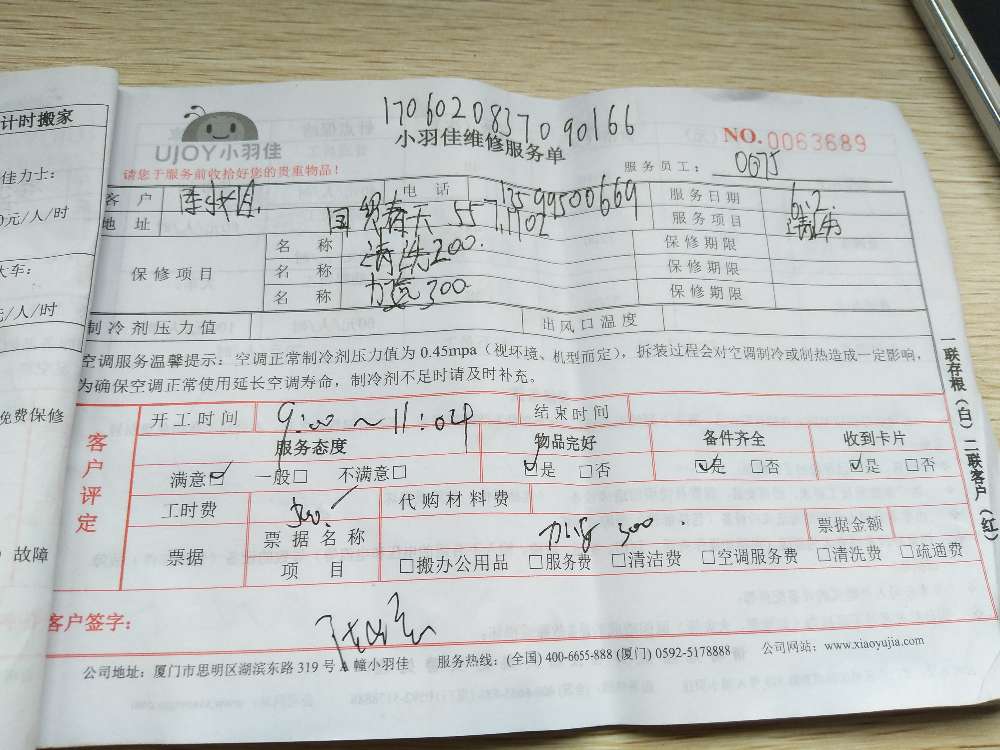 计时搬家
佳力士：
0元/人/时
大车：
元/人/时
免费保修
故障
1706020837090166
UJOY小羽佳
小羽佳维修服务单
NO. 0063689
请您于服务前收拾好您的贵重物品！
服务员工： 0075
客户 电话 13599500669 服务日期 6.2
地址 国贸春天 557.1702 服务项目 清洗
保修项目 名称 清洗200. 保修期限
名称 加氟300 保修期限
名称 保修期限
制冷剂压力值 出风口温度
空调服务温馨提示：空调正常制冷剂压力值为 0.45mpa（视环境、机型而定），拆装过程会对空调制冷或制热造成一定影响，
为确保空调正常使用延长空调寿命，制冷剂不足时请及时补充。
客户评定
开工时间 9:00～11:04 结束时间
服务态度 物品完好 备件齐全 收到卡片
满意☑ 一般□ 不满意□ ☑是 □否 ☑是 □否 ☑是 □否
工时费 代购材料费
票据 票据名称 加氟 300. 票据金额
项目 □搬办公用品 □服务费 □清洁费 □空调服务费 □清洗费 □疏通费
客户签字：
公司地址：厦门市思明区湖滨东路 319 号 A 幢小羽佳 服务热线：(全国) 400-6655-888 (厦门) 0592-5178888 公司网站：www.xiaoyujia.com
一联存根（白）二联客户（红）